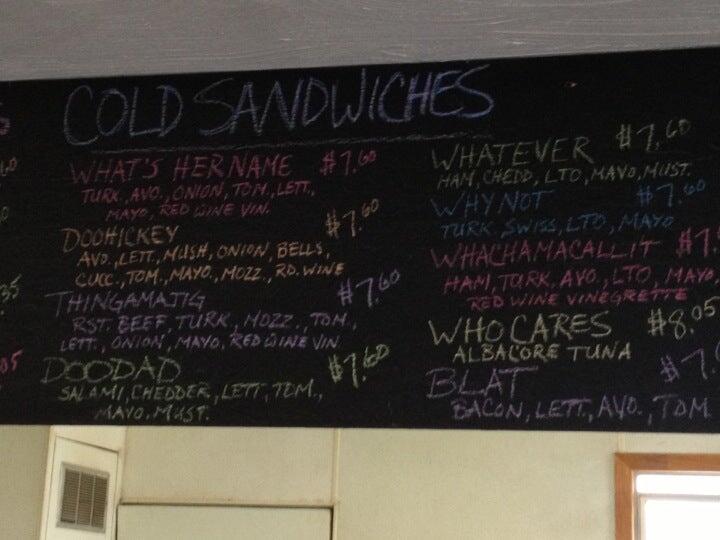 COLD SANDWICHES
WHAT'S HER NAME $7.60
TURK. AVO., ONION, TOM., LETT.,
MAYO, RED WINE VIN.
DOOHICKEY $7.60
AVO., LETT., MUSH, ONION, BELLS,
CUCC., TOM., MAYO., MOZZ., RD. WINE
THINGAMAJIG $7.60
RST. BEEF, TURK., MOZZ., TOM.,
LETT., ONION, MAYO, RED WINE VIN.
DOODAD $7.60
SALAMI, CHEDDER, LETT, TOM.,
MAYO, MUST.
WHATEVER $7.60
HAM, CHEDD, LTO, MAYO, MUST.
WHY NOT $7.60
TURK. SWISS, LTO, MAYO
WHACHAMACALLIT $7.
HAM, TURK. AVO., LTO, MAYO
RED WINE VINEGRETTE
WHO CARES $8.05
ALBACORE TUNA
BLAT $7.
BACON, LETT., AVO., TOM